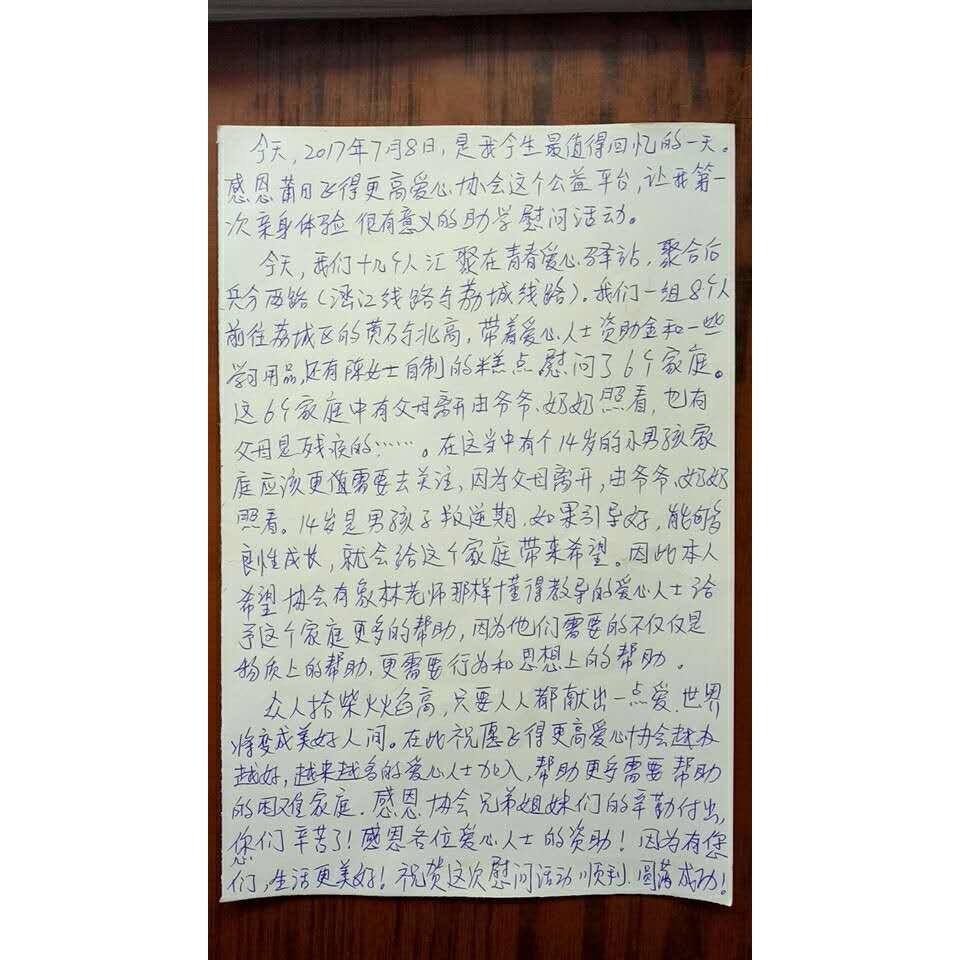 今天，2017年7月8日，是我今生最值得回忆的一天。
感恩莆田飞得更高爱心协会这个公益平台，让我第一
次亲身体验很有意义的助学慰问活动。
今天，我们十几个人汇聚在青春爱心驿站，聚合后
兵分两路（涵江线路与荔城线路）。我们一组8个人
前往荔城区的黄石与北高，带着爱心人士资助金和一些
学习用品，还有陈女士自制的糕点慰问了6个家庭。
这6个家庭中有父母离开由爷爷、奶奶照看，也有
父母是残疾的……。在这当中有个14岁的小男孩家
庭应该更值需要去关注，因为父母离开，由爷爷、奶奶
照看。14岁是男孩子叛逆期，如果引导好，能够
良性成长，就会给这个家庭带来希望。因此本人
希望协会有象林老师那样懂得教导的爱心人士给
予这个家庭更多的帮助，因为他们需要的不仅仅是
物质上的帮助，更需要行为和思想上的帮助。
众人拾柴火焰高，只要人人都献出一点爱，世界
将变成美好人间。在此祝愿飞得更高爱心协会越办
越好，越来越多的爱心人士加入，帮助更多需要帮助
的困难家庭。感恩协会兄弟姐妹们的辛勤付出，
您们辛苦了！感恩各位爱心人士的资助！因为有您
们，生活更美好！祝贺这次慰问活动顺利、圆满成功！